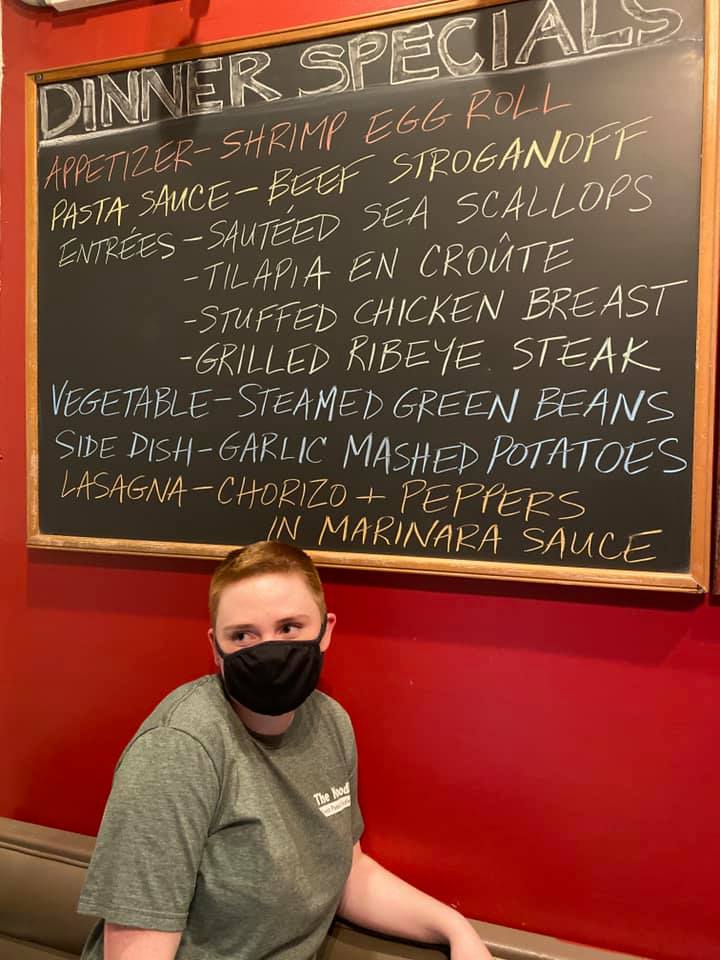 DINNER SPECIALS
APPETIZER - SHRIMP EGG ROLL
PASTA SAUCE - BEEF STROGANOFF
ENTRÉES - SAUTÉED SEA SCALLOPS
- TILAPIA EN CROÛTE
- STUFFED CHICKEN BREAST
- GRILLED RIBEYE STEAK
VEGETABLE - STEAMED GREEN BEANS
SIDE DISH - GARLIC MASHED POTATOES
LASAGNA - CHORIZO + PEPPERS
IN MARINARA SAUCE
The